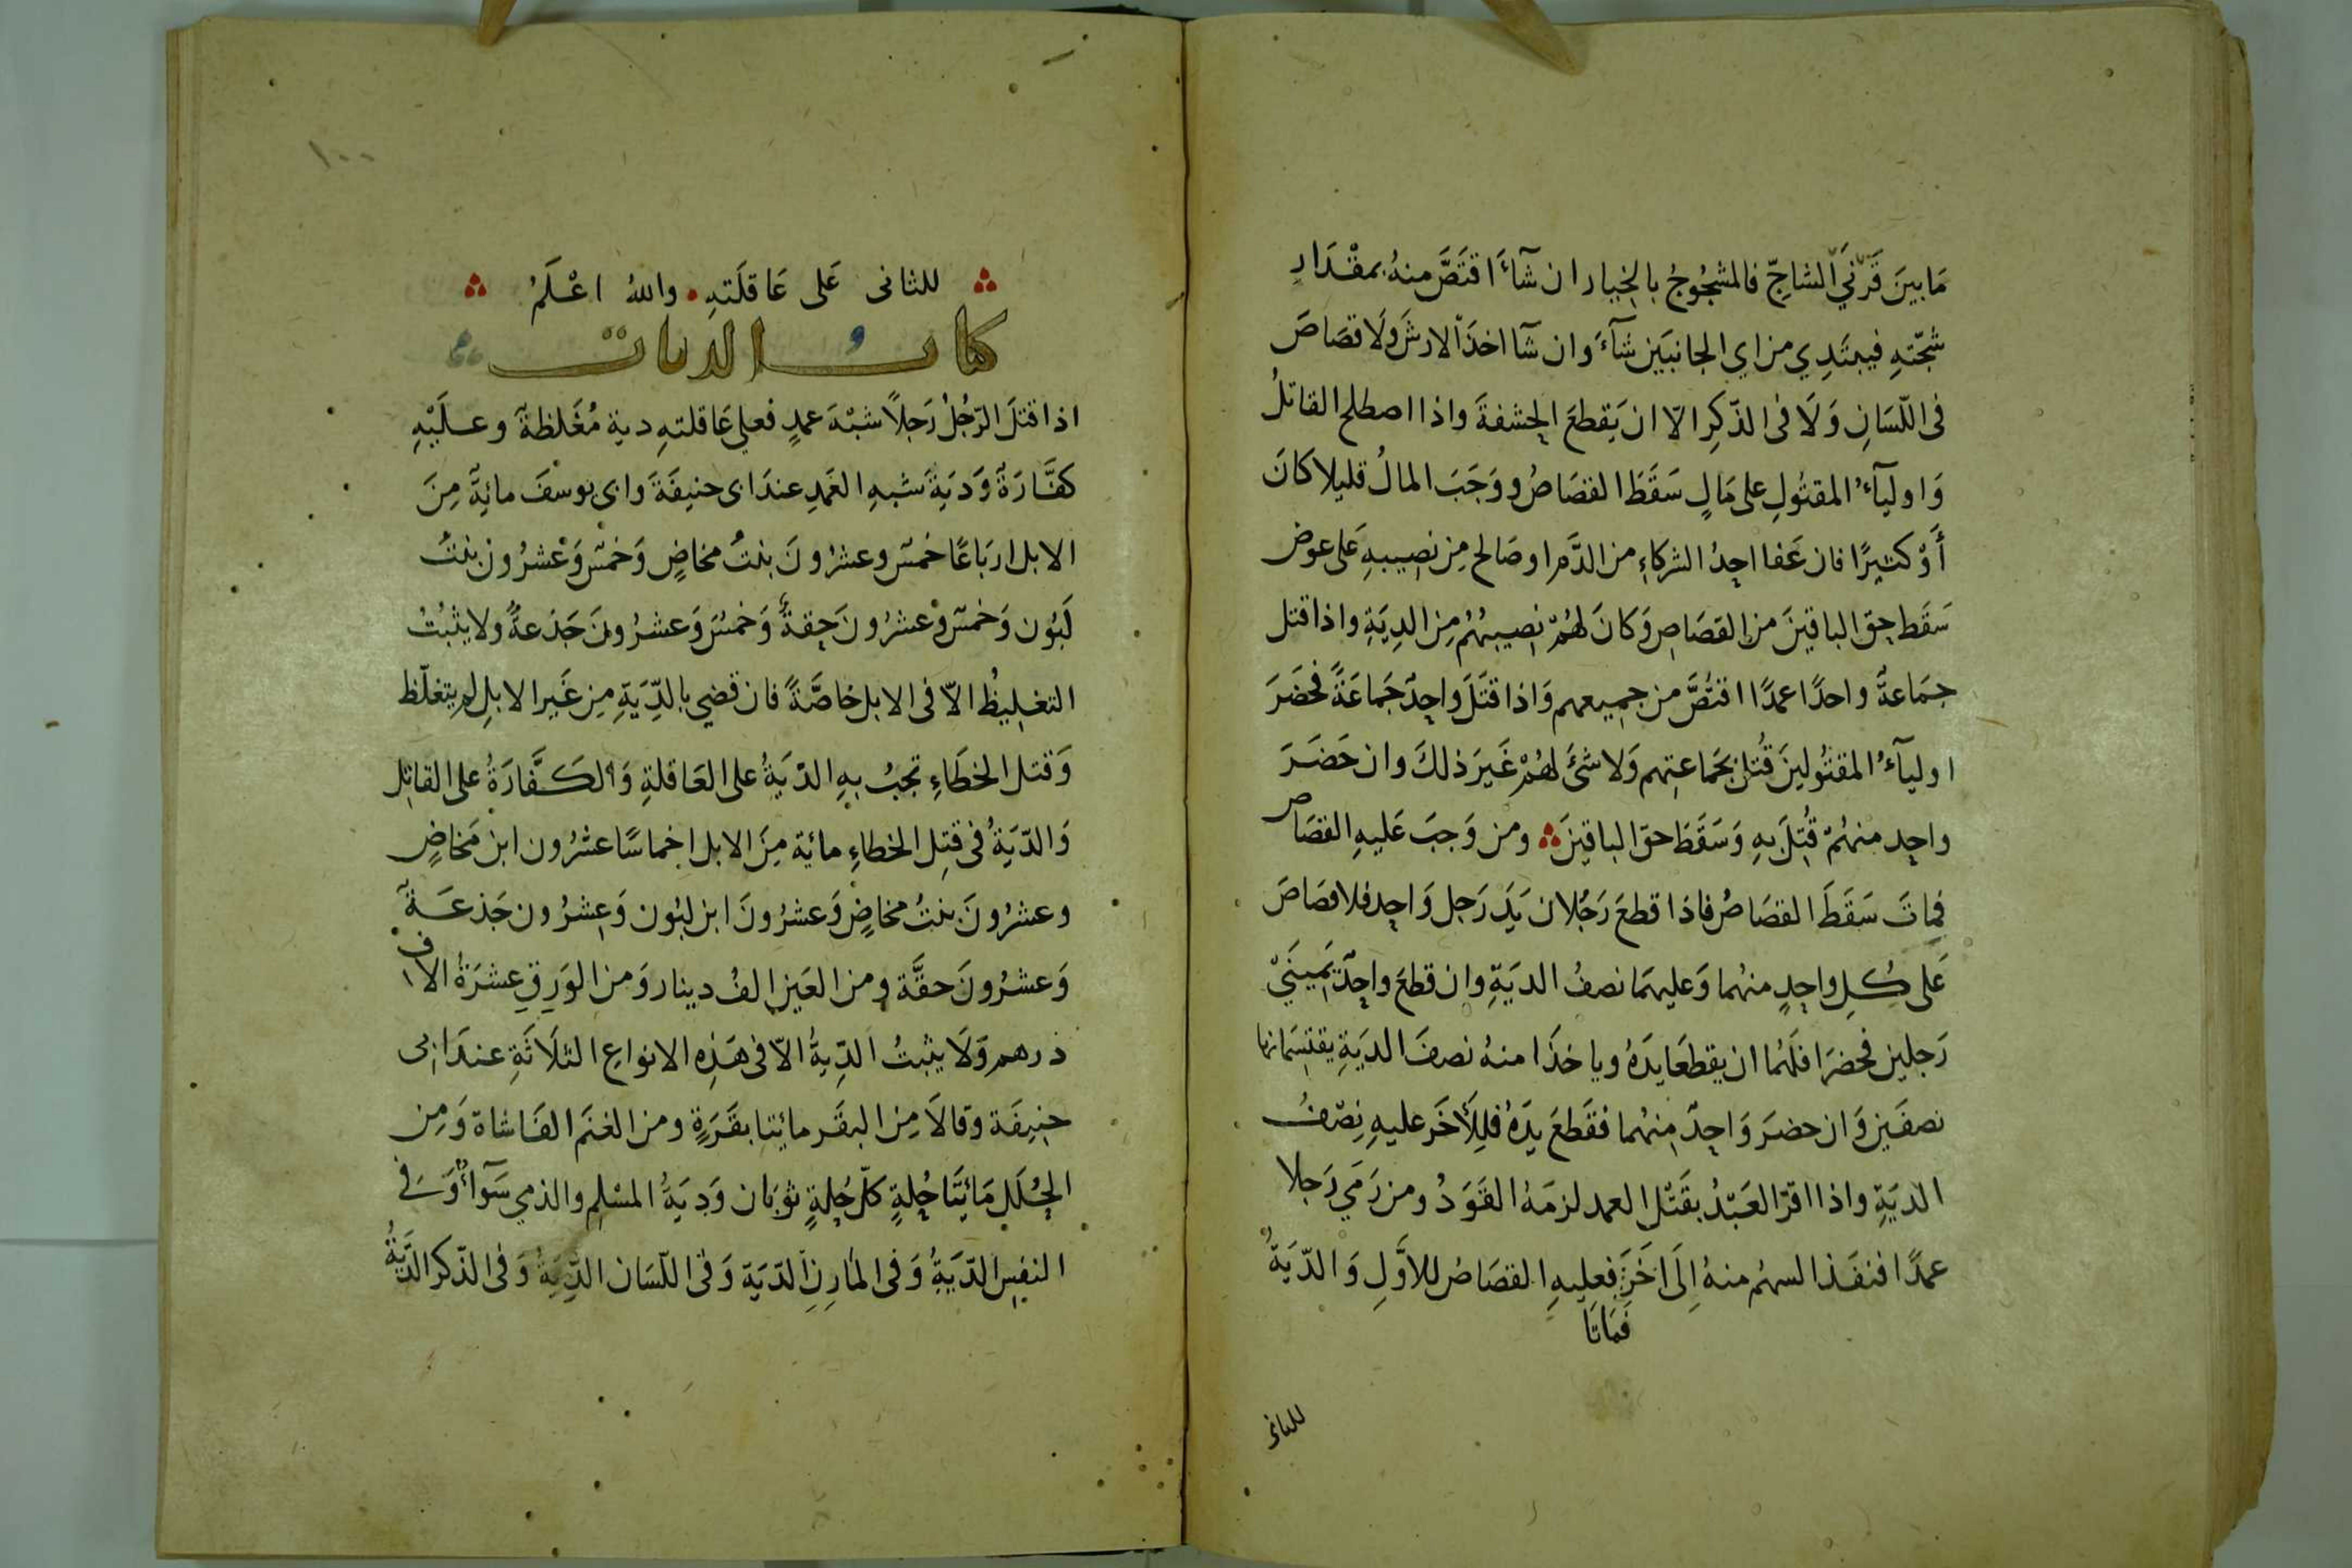 مَا بينَ قَرْنَيِ الشاجِّ فالمشجُوجُ بالخيار ان شآءَ اقتَصَّ منهُ بمقْدَارِ
شجّتهِ فيبتَدِي من اي الجانبَين شآءَ وان شآ اخذَ الارشَ ولَا قصَاصَ
فى اللّسَانِ وَلَا فى الذّكِرِ الّا ان يَقطعَ الحشفةَ واذا اصطلح القاتلُ
وَاوليآءُ المقتُولِ على مَالٍ سَقَطَ القصَاصُ ووَجَبَ المالُ قليلا كانَ
أوْ كثيرًا فان عَفا احدُ الشركاءِ من الدَّم او صَالح مِن نصِيبهِ عَلى عوض
سَقَط حق الباقينَ من القصَاصِ وَكانَ لهُمْ نصِيبهُمُ مِن الدِيَةِ واذا قتل
جمَاعةٌ واحدًا عمدًا اقتُصَّ من جميعهم وَاذا قتَلَ واحِدٌ جَماعَةً فحَضَرَ
اوليآءُ المقتُولينَ قُتل بجَماعتِهم وَلا شئَ لهُمْ غَيرَ ذلكَ وان حَضَرَ
واحِد منهُمْ قُتِلَ بهِ وَسَقَطَ حقّ الباقينَ ومن وَجبَ عَليهِ القصَاص
فماتَ سَقَطَ القصَاصُ فاذا قطعَ رَجُلان يَدَ رَجل وَاحِد فلا قصَاصَ
عَلى كُلِ واحِدٍ منهُما وَعليهمَا نصفُ الديَةِ وان قطعَ واحِدٌ يَمينَيْ
رَجلين فحضرَا فلَهُما ان يقطعَا يدَهُ وياخذَا منهُ نصفَ الديَةِ يقتسِمَانها
نصفَين وَان حضرَ وَاحِدٌ مِنهُما فقَطعَ يدَهُ فلِلأخَر عليهِ نِصْفُ
الدّيَةِ واذا اقرّ العَبْدُ بقَتْل العمد لزمَهُ القوَدُ ومن رَمَي رَجلا
عمدًا فنفَذ السهمُ منهُ اِلَى اخَرَ فعليهِ القصَاصُ للاَوَّلِ وَالدّيَةُ
فمَاتَا
للثانى
١٠٠
للثانى عَلى عَاقلَتهِ واللهُ اعْلَمُ
كتابُ الديات
اذا قتلَ الرّجُلُ رَجلًا شبْهَ عمدٍ فعلي عَاقلتهِ دية مُغَلظةٌ وعليْهِ
كفَّارَةٌ وَديَةُ شبهِ العَمدِ عندَ ابى حنيفَةَ وابى يوسفَ مائةٌ مِنَ
الابل ارباعًا خمسٌ وعشرُونَ بنتُ مخاضٍ وَخمسٌ وَعْشرُون بنتُ
لَبُون وَخمسٌ وعشرُونَ حِقةٌ وَخمسٌ وَعشرُونَ جَذعةٌ ولا يثبُتُ
التغليظُ الاّ فى الابل خاصَّةً فان قضي بالدِّيَةِ مِن غَير الابلِ لم يتغلّظ
وَقتل الخطَاءِ تجبُ بهِ الدّيَةُ على العَاقلةِ وَالكَفَّارَةُ على القاتِل
وَالدّيَةُ فى قتِل الخطاءِ مائة مِنَ الابل اخماسًا عشرُون ابن مَخاضٍ
وعشرُونَ بنتُ مخاضٍ وَعشرُونَ ابن لبُون وَعِشرُون جَذعَةٌ
وَعشرُونَ حقَّة ومن العَين الفُ دينار وَمن الوَرِقِ عشرَةُ الاف
درهم وَلَا يثبتُ الدِّيةُ الاّ فى هَذِه الانواع الثلَاثَةِ عندَ ابى
حنِيفَة وَقالَا مِن البقَر مائِتا بقَرَةٍ ومن الغنَم الفَا شاة وَمِن
الحُلَلِ مَائتَا حُلةٍ كلّ حُلةٍ ثوبَان وَدِيَةُ المسْلِم والذمي سَوَآءٌ وَفى
النفِس الدّيَةُ وَفى المَارِنِ الدّيَة وَفى اللّسَان الدِّيَةُ وَفى الذّكر الدَّيَةُ